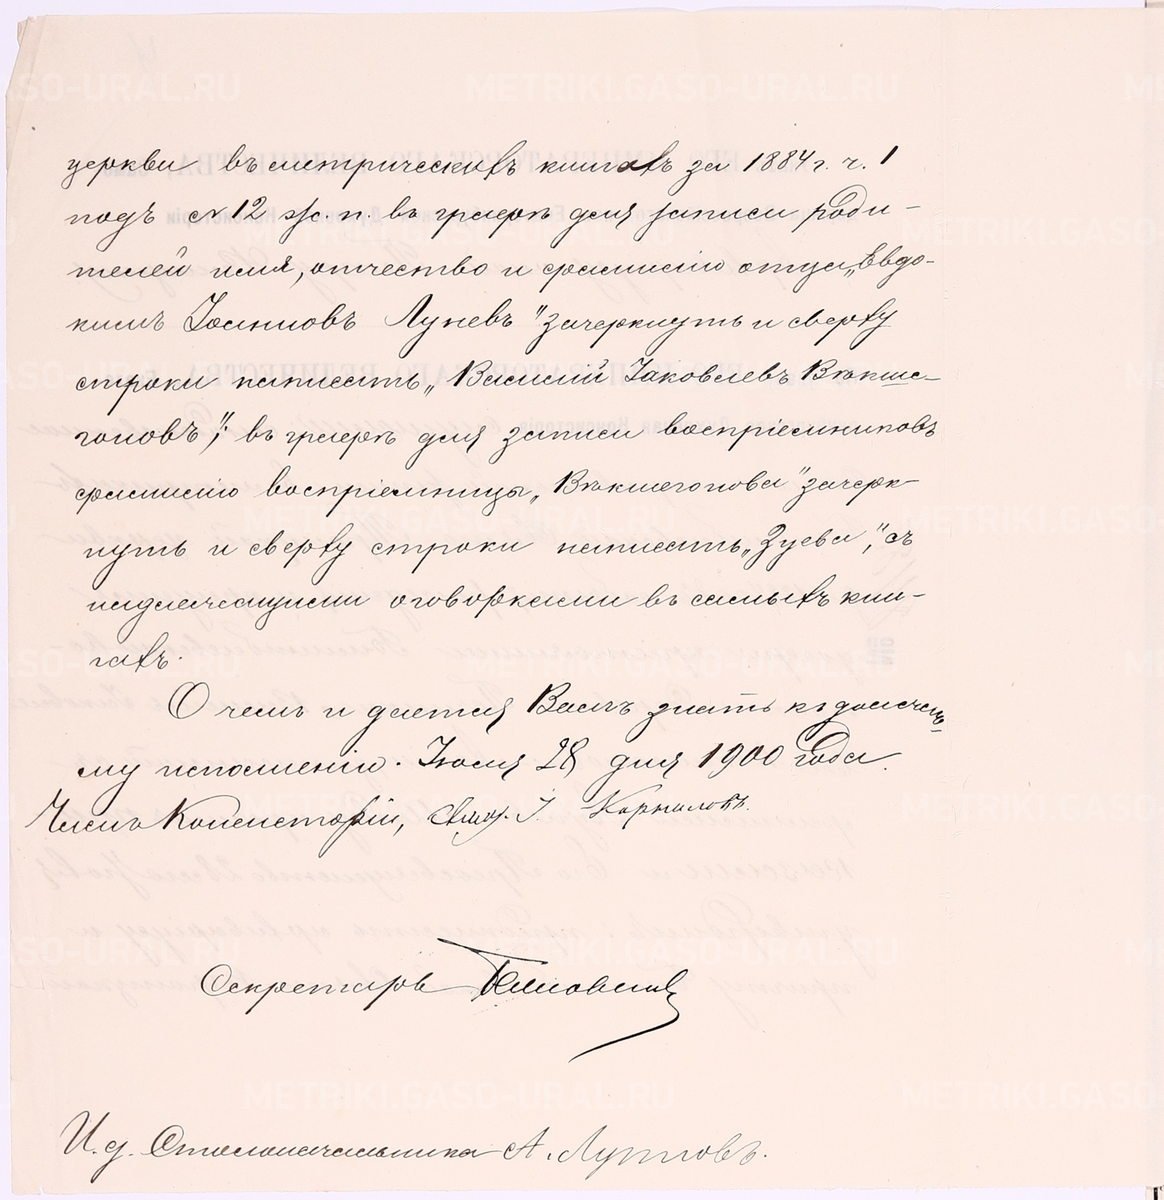 церкви въ метрическихъ книгахъ за 1884 г. ч. 1
подъ № 12 ж. п. въ графѣ для записи роди-
телей имя, отчество и фамилію отца „Евдо-
кимъ Іоанновъ Луневъ" зачеркнуть и сверху
строки написать „Василий Іаковлевъ Вѣкше-
гоновъ"; въ графѣ для записи воспріемниковъ
фамилію воспріемницы „Вѣкшегонова" зачерк-
нуть и сверху строки написать „Зуева", съ
надлежащими оговорками въ самыхъ кни-
гахъ.
О чемъ и дается Вамъ знать къ должно-
му исполненію. Іюля 28 дня 1900 года.
Членъ Консисторіи, Свящ. І.
Секретарь
И. д. Столоначальника А.
METRIKI.GASO-URAL.RU